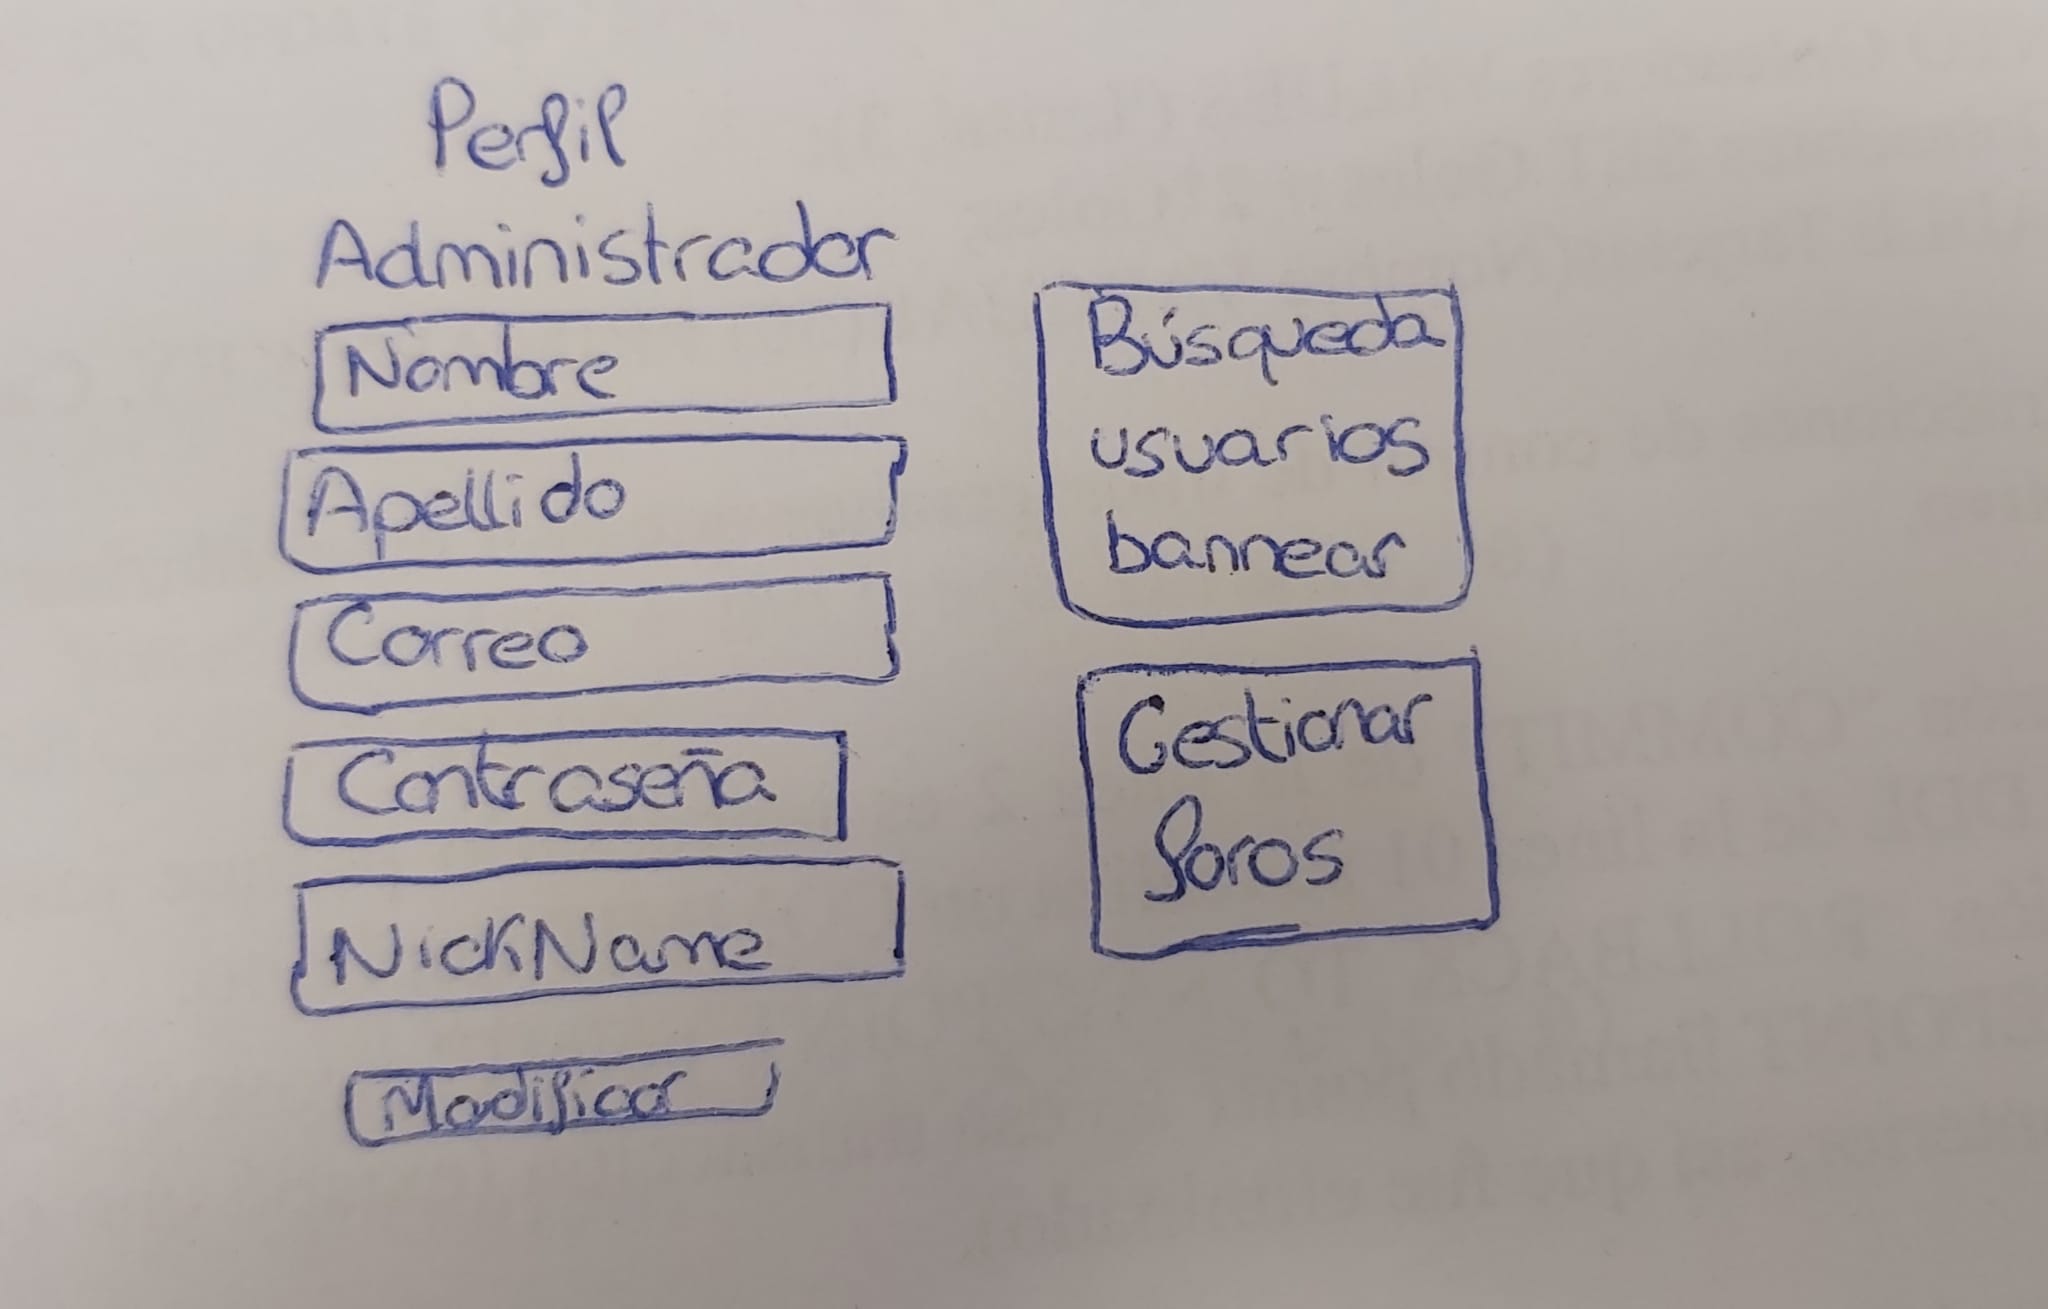 Perfil
Administrador
Nombre
Apellido
Correo
Contraseña
NickName
Modificar
Búsqueda
usuarios
bannear
Gestionar
foros